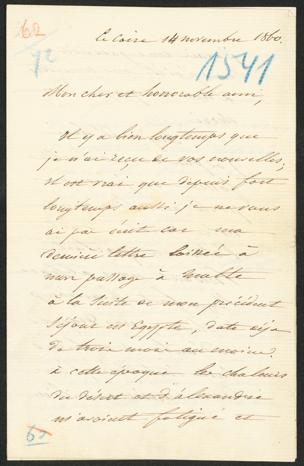 62
72
le Caire 14 novembre 1860.
1541
Mon cher et honorable ami,
Il y a bien longtemps que
je n'ai reçu de vos nouvelles;
il est vrai que depuis fort
longtemps aussi je ne vous
ai pas écrit car ma
dernière lettre laissée à
mon passage à
à la suite de mon précédent
séjour en Egypte, date déja
de trois mois au moins.
à cette époque les chaleurs
du désert et d'alexandrie
m'avaient fatigué et